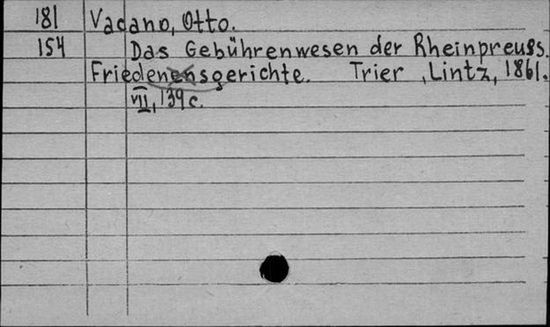 181 Vacano, Otto.
154 Das Gebührenwesen der Rheinpreuss.
Friedenensgerichte. Trier, Lintz, 1861.
VII, 139 c.